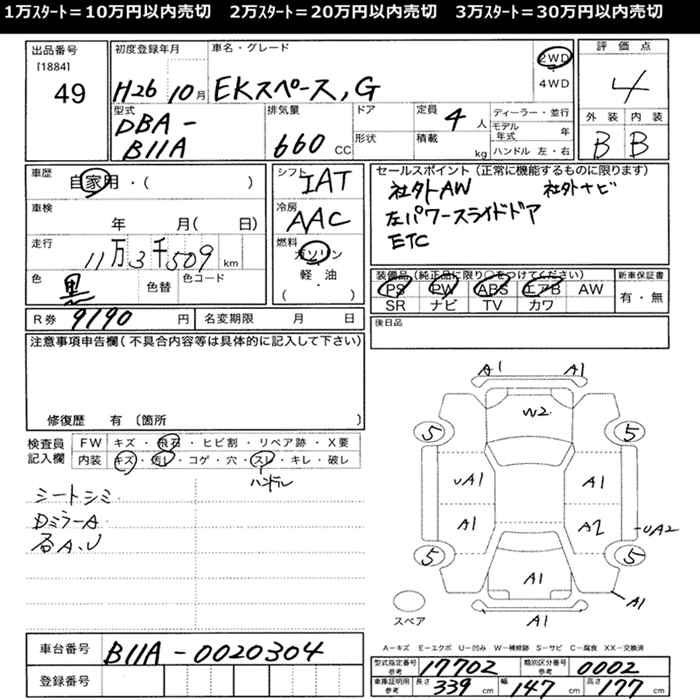 1万スタート=10万円以内売切　2万スタート=20万円以内売切　3万スタート=30万円以内売切
出品番号
[1884]
49
初度登録年月
H26 10月
車名・グレード
EKスペース, G
2WD
・
4WD
評価点
4
外装 内装
B B
型式
DBA-
B11A
排気量
660 CC
ドア
形状
定員 4人
積載 kg
ディーラー・並行
モデル年式 年
ハンドル 左・右
車歴
自家用・( )
車検
年 月( 日)
走行
11万3千509 km
色
黒
色替
色コード
シフト
IAT
冷房
AAC
燃料
ガソリン
軽・油
( ・ )
セールスポイント(正常に機能するものに限ります)
社外AW 社外ナビ
左パワースライドドア
ETC
装備品(純正品に限り○をつけてください)
PS PW ABS エアB AW
SR ナビ TV カワ
新車保証書
有・無
R券 9190 円
名変期限 月 日
後日品
注意事項申告欄(不具合内容等は具体的に記入して下さい)
修復歴 有(箇所 )
検査員
記入欄
FW キズ・飛石・ヒビ割・リペア跡・X要
内装 キズ・汚レ・コゲ・穴・スレ・キレ・破レ
ハンドル
シートシミ
DミラーA
右A.U
A1 A1
W2
5 5
UA1 A1
A1 A2 UA2
5 5
A1
A1
A1
スペア
A-キズ E-エクボ U-凹み W-補修跡 S-サビ C-腐食 XX-交換済
車台番号 B11A-0020304
登録番号
型式指定番号
参考
17702
類別区分番号
参考
0002
車庫証明用
参考
長さ 339 cm 幅 147 cm 高さ 177 cm